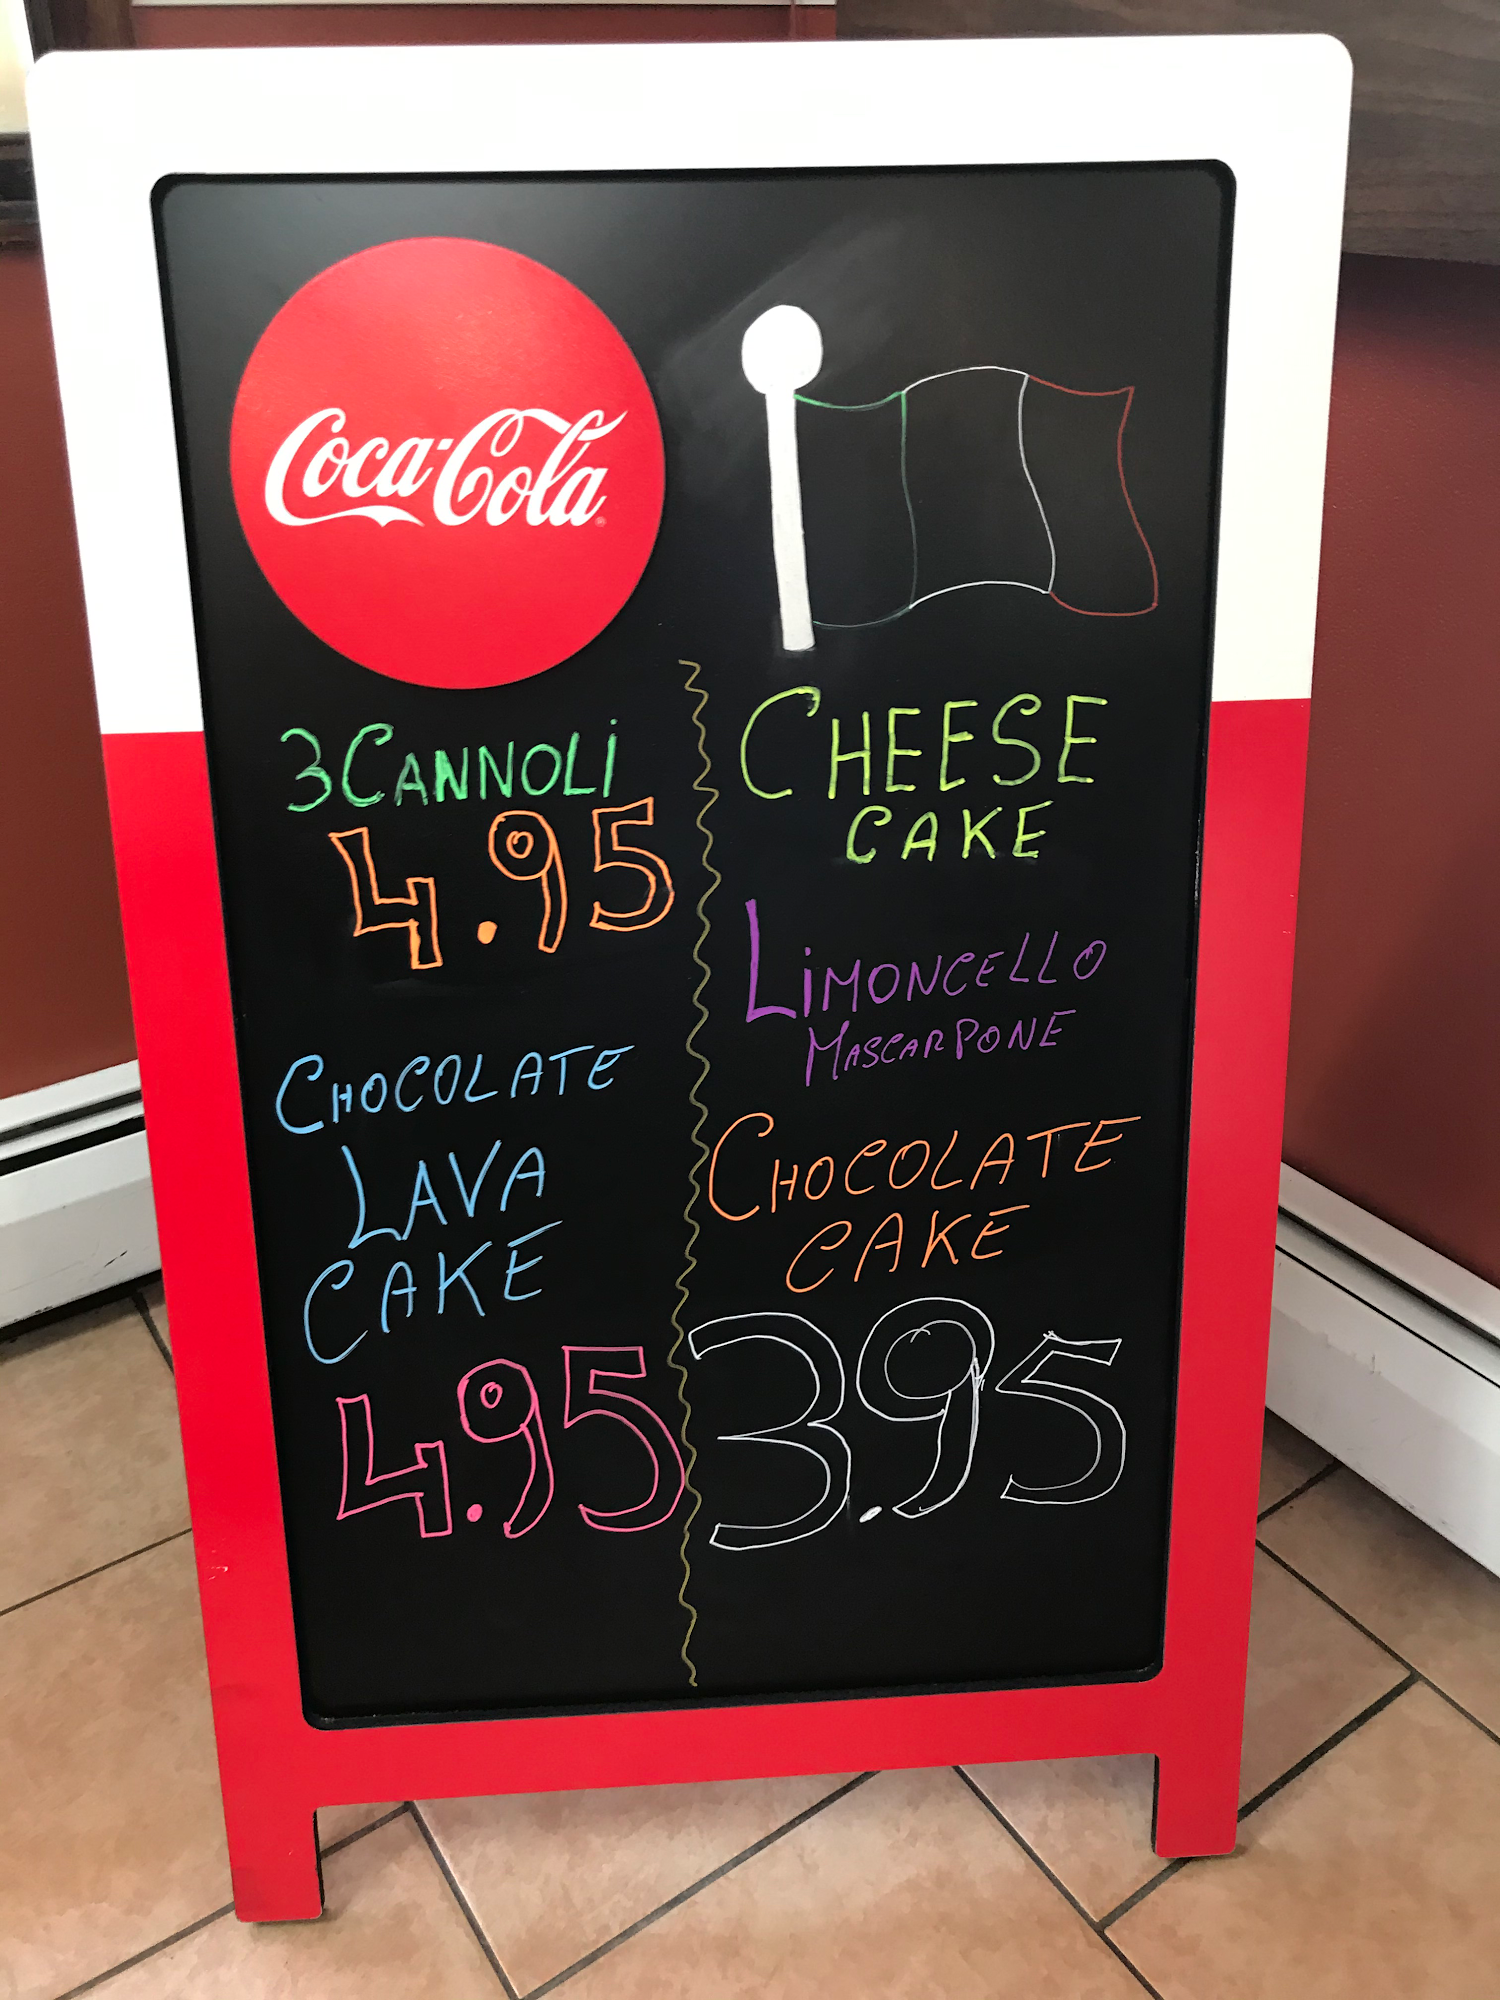 Coca-Cola
3 CANNOLI
4.95
CHOCOLATE
LAVA
CAKE
4.95
CHEESE
CAKE
LIMONCELLO
MASCARPONE
CHOCOLATE
CAKE
3.95